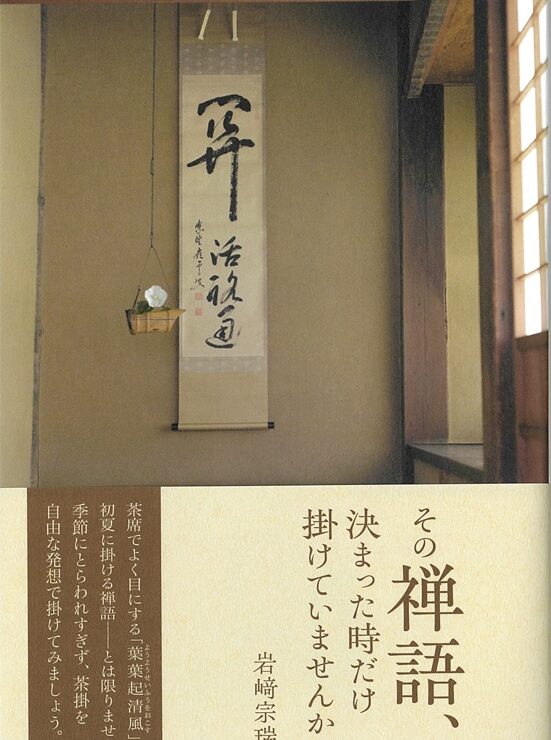 活路通
その禅語、
決まった時だけ
掛けていませんか
岩﨑宗瑞
茶席でよく目にする「葉葉起清風」
ようようせいふうをおこす
初夏に掛ける禅語――とは限りませ
季節にとらわれすぎず、茶掛を
自由な発想で掛けてみましょう。